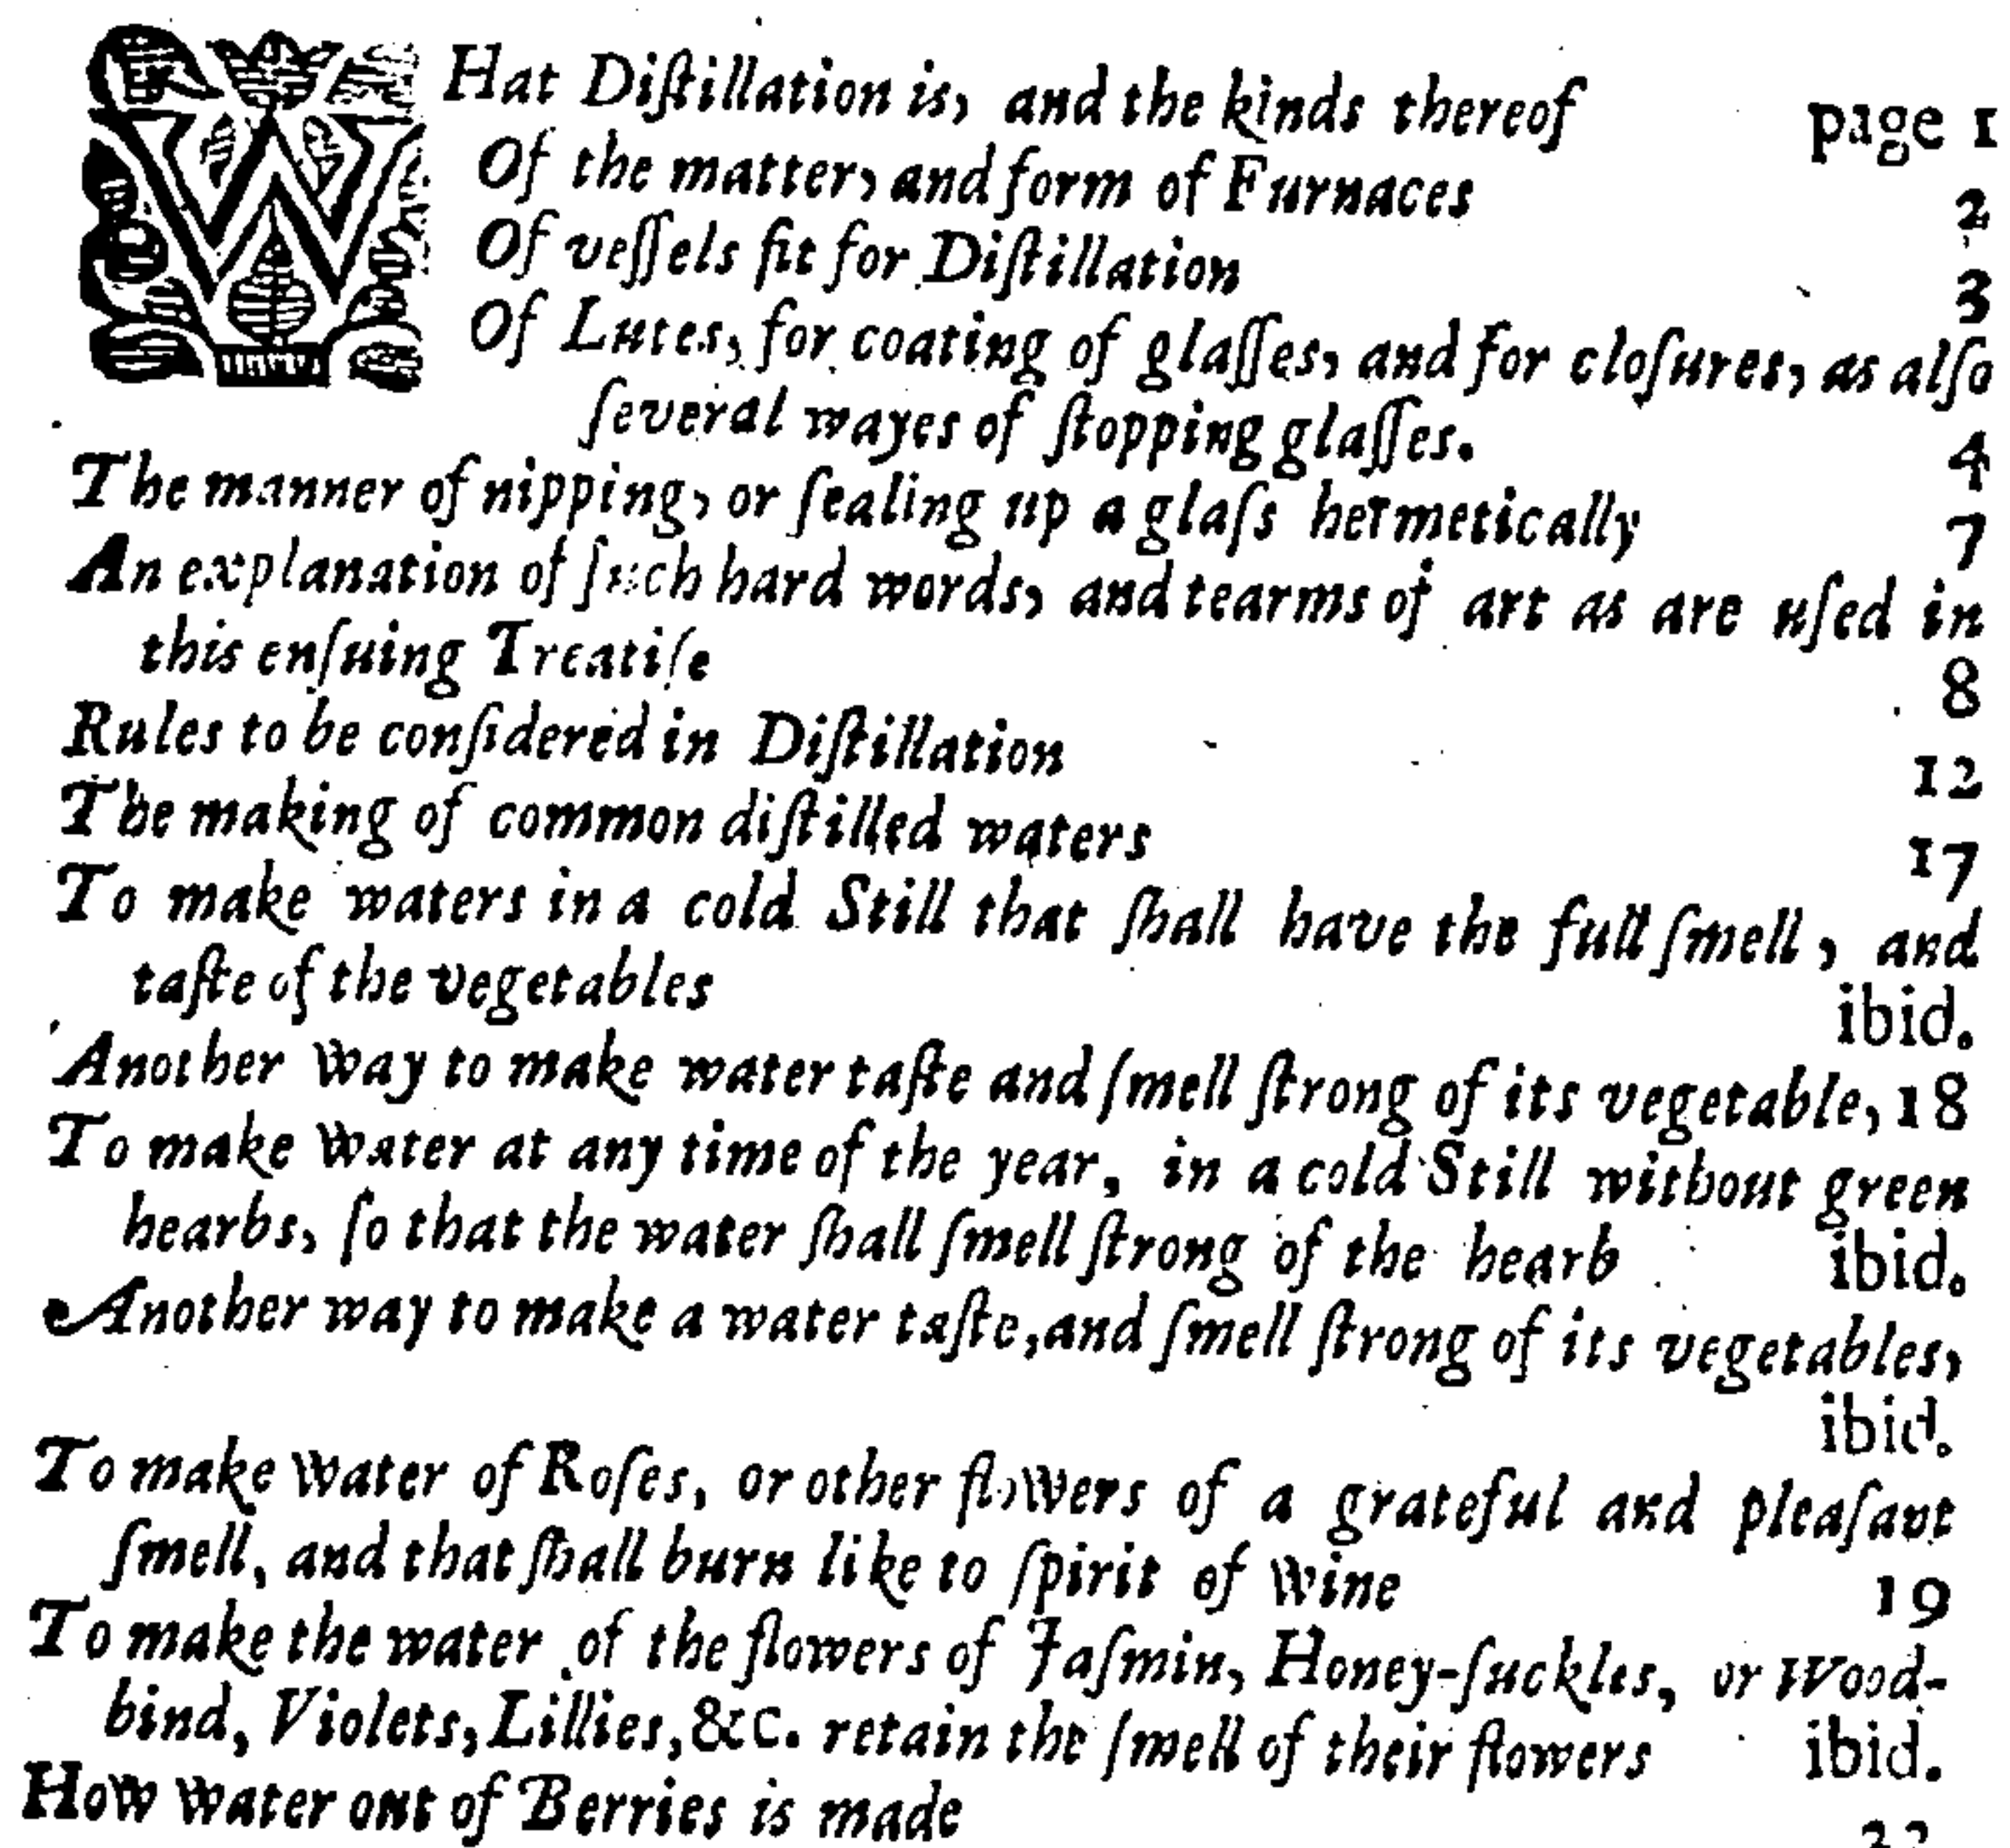 WHat Diſtillation is, and the kinds thereof page 1
Of the matter, and form of Furnaces 2
Of veſſels fit for Diſtillation 3
Of Lutes, for coating of glaſſes, and for cloſures, as alſo
ſeveral wayes of ſtopping glaſſes. 4
The manner of nipping, or ſealing up a glaſs hermetically 7
An explanation of ſuch hard words, and tearms of art as are uſed in
this enſuing Treatiſe 8
Rules to be conſidered in Diſtillation 12
The making of common diſtilled waters 17
To make waters in a cold Still that ſhall have the full ſmell, and
taſte of the vegetables ibid.
Another way to make water taſte and ſmell ſtrong of its vegetable, 18
To make water at any time of the year, in a cold Still without green
hearbs, ſo that the water ſhall ſmell ſtrong of the hearb ibid.
Another way to make a water taſte, and ſmell ſtrong of its vegetables,
ibid.
To make water of Roſes, or other flowers of a grateful and pleaſant
ſmell, and that ſhall burn like to ſpirit of wine 19
To make the water of the flowers of Jaſmin, Honey-ſuckles, or Wood-
bind, Violets, Lillies, &c. retain the ſmell of their flowers ibid.
How water out of Berries is made